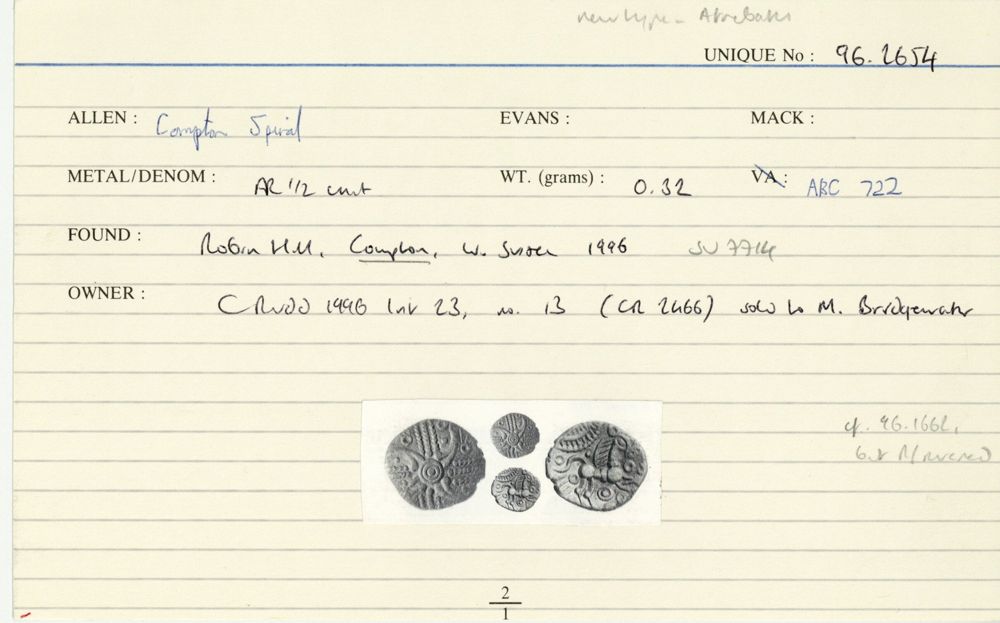 new type - Atrebatic
UNIQUE No : 96.2654
ALLEN : Compton Spiral EVANS : MACK :
METAL/DENOM : AR 1/2 unit WT. (grams) : 0.32 VA : ABC 722
FOUND : Robin Hill, Compton, W. Sussex 1996 SU 7714
OWNER : C Rudd 1996 list 23, no. 13 (CR 2466) sold to M. Bridgewater
cf. 96.1662,
but R/reversed
2
1